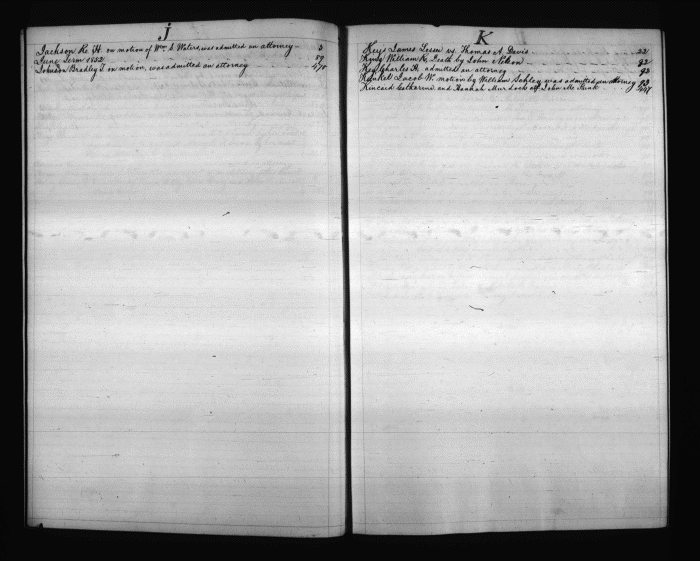 J
Jackson Re. H. on motion of Wm. S. Waters, was admitted an attorney 3
June Term 1852 59
Johnson Bradley T. on motion, was admitted an attorney 478
K
Keys James Lessee vs Thomas A. Davis 22
King William R. Death by John Nelson 92
Key Charles H. admitted an attorney 92
Kunkel Jacob W. motion by William Schley was admitted an Attorney 93
Kincaid Catharine and Hannah Murdock off John Mc